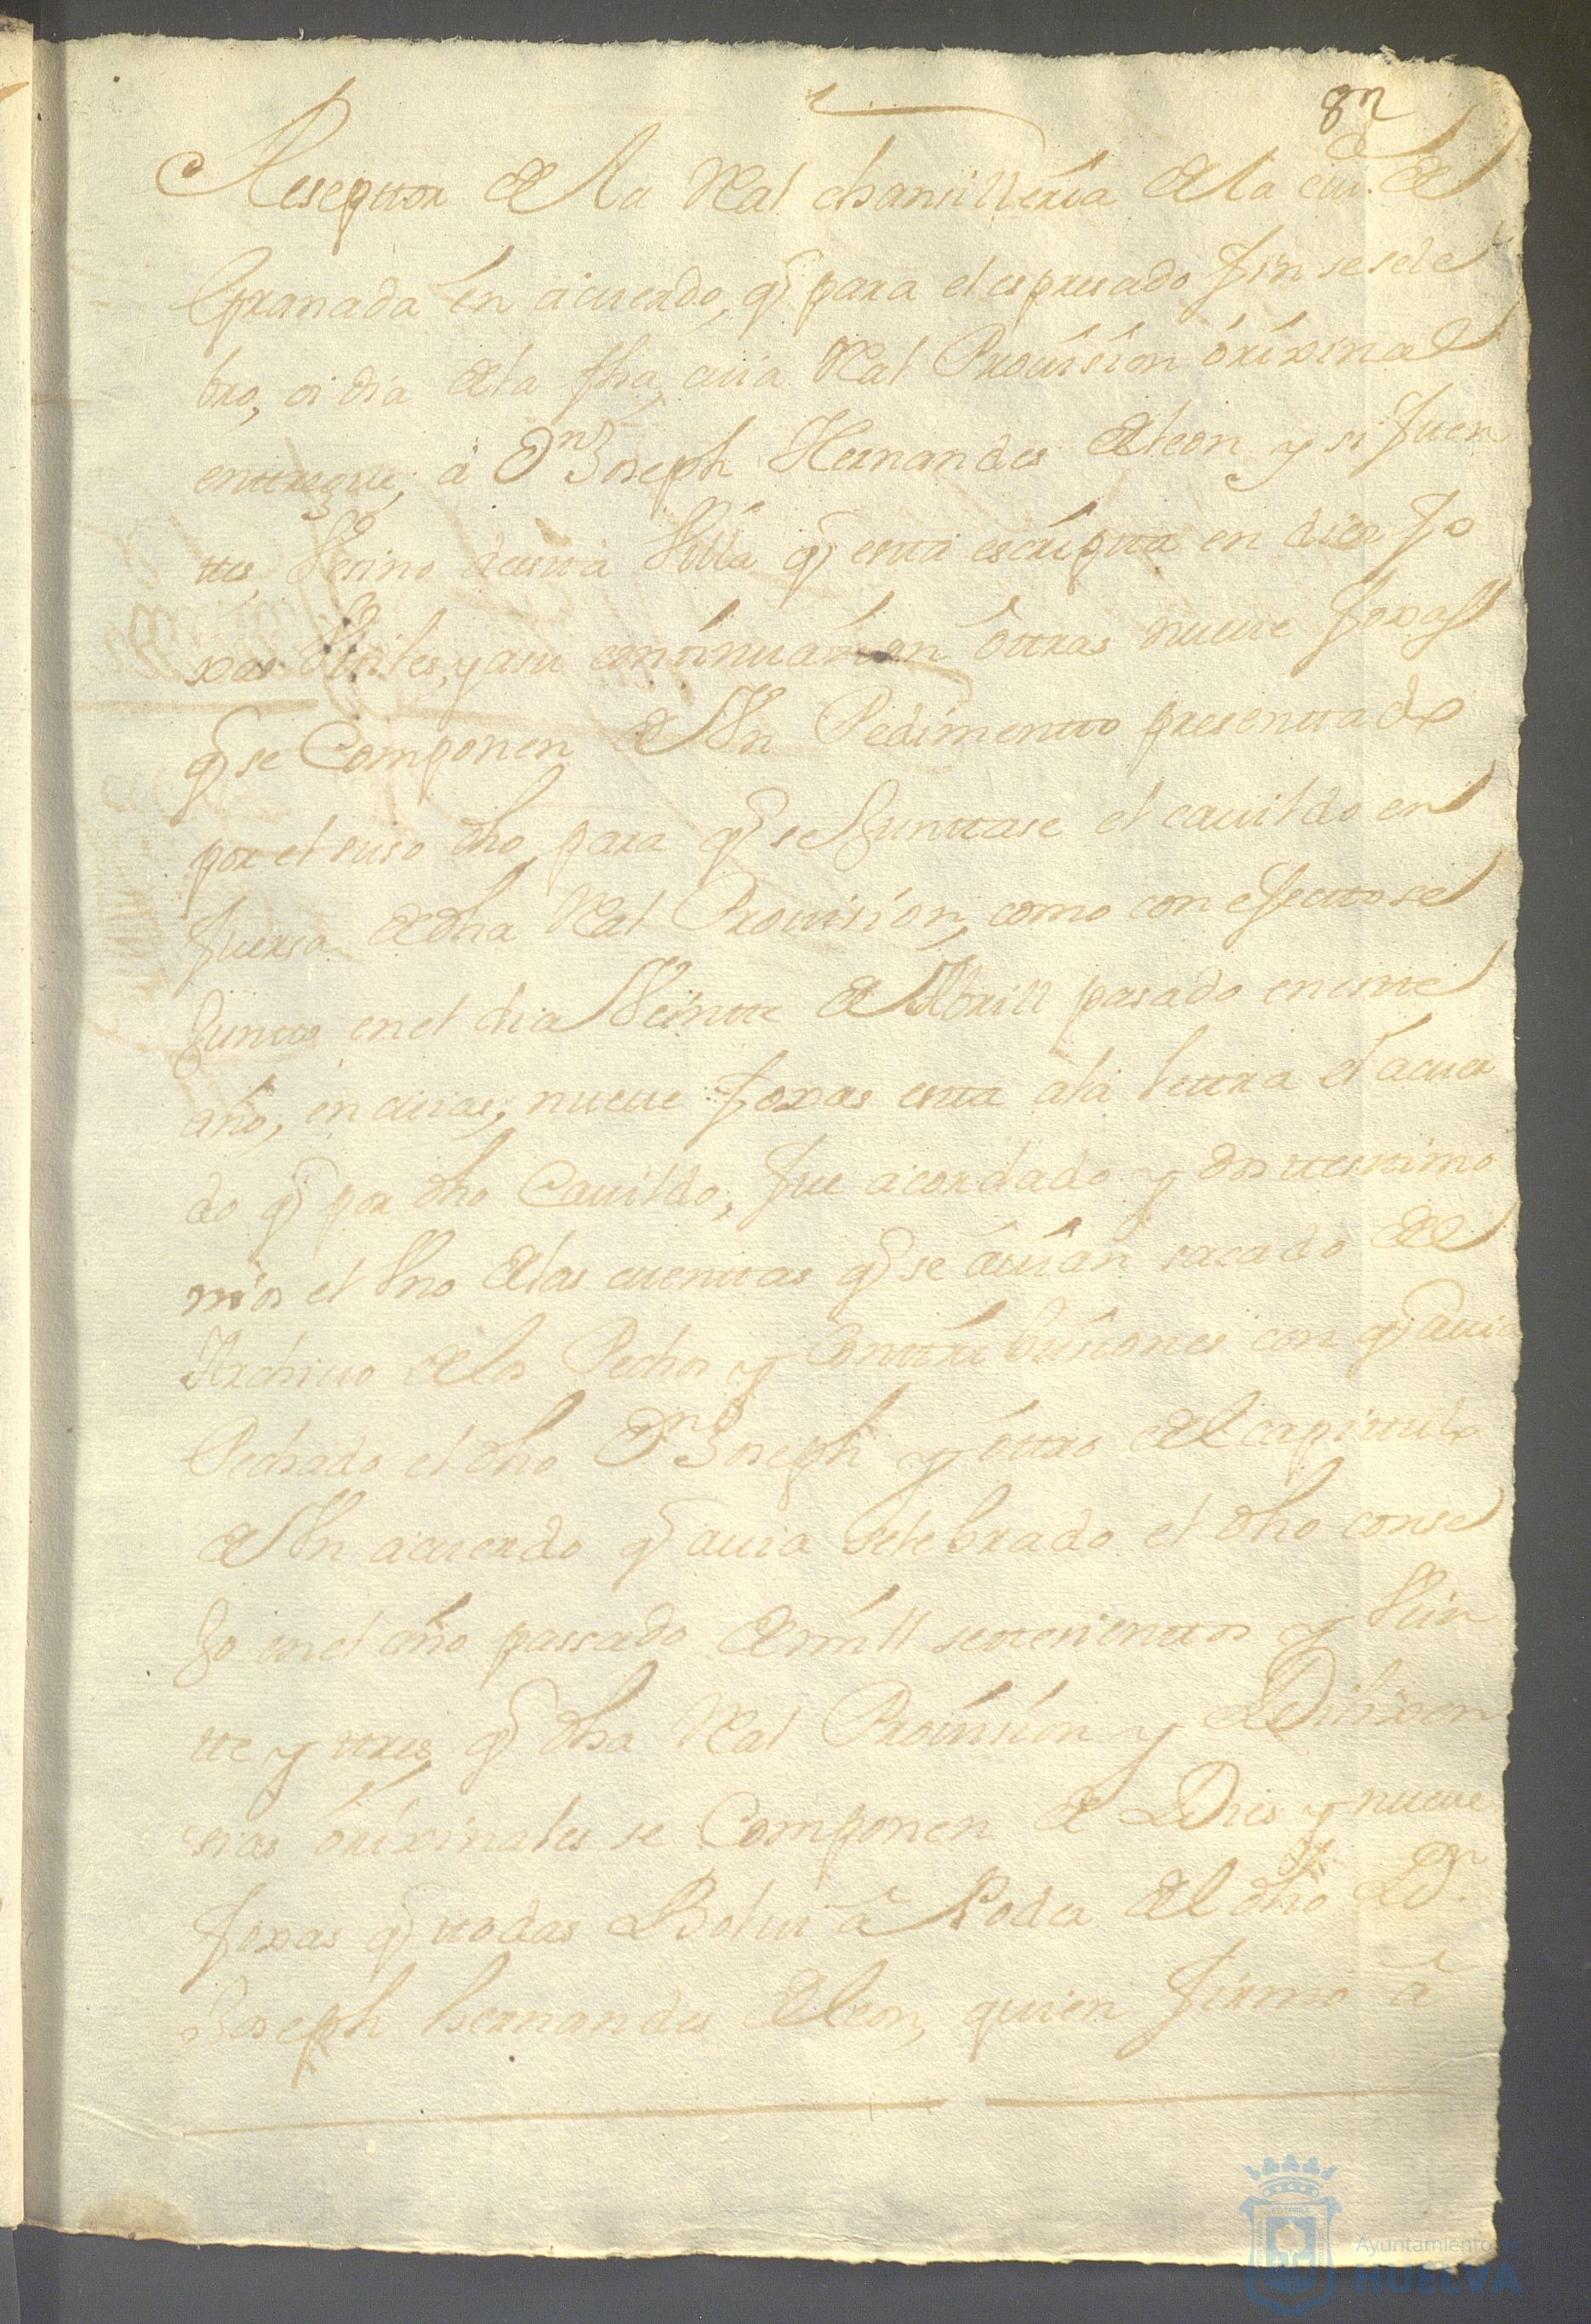 82
Reseptor de la Real chansilleria de la ciud. de
Granada en acuerdo, q para el espresado fin se sele
bro, oi dia de la fha, cuia Real Provision orixinal
entregue, a Dn Joseph Hernandes de leon y si fuen
tes, Vesino de esta Villa q esta escripta en dies fo
xas Utiles, y asu continuasion ottras nueve foxas
q se Componen de Un Pedimentto presenttado
por el suso dho para q se Junttase el cavildo en
fuersa de dha Real Provision, como con efecto se
Juntto en el dia Veintte de Abrill pasado en estte
año, en cuias, nueve foxas esta ala lettra el acuer
do q por dho Cavildo, fue acordado y dos ttesttimo
nios el Uno de las cuenttas q se avian sacado del
Archivo de los Pechos y Conttribusiones con q avia
Pechado el dho Dn Joseph y ottro del capittulo
de Un acuerdo q avia selebrado el dho conse
Jo en el año passado de mill settesienttos y Vein
tte y ttres, q dha Real Provision y Dilixen
sias orixinales se Componen de Dies y nueve
foxas q ttodas Bolvi a Poder del dho Dn.
Joseph hernandes de leon, quien firmo a
Ayuntamiento de
HUELVA